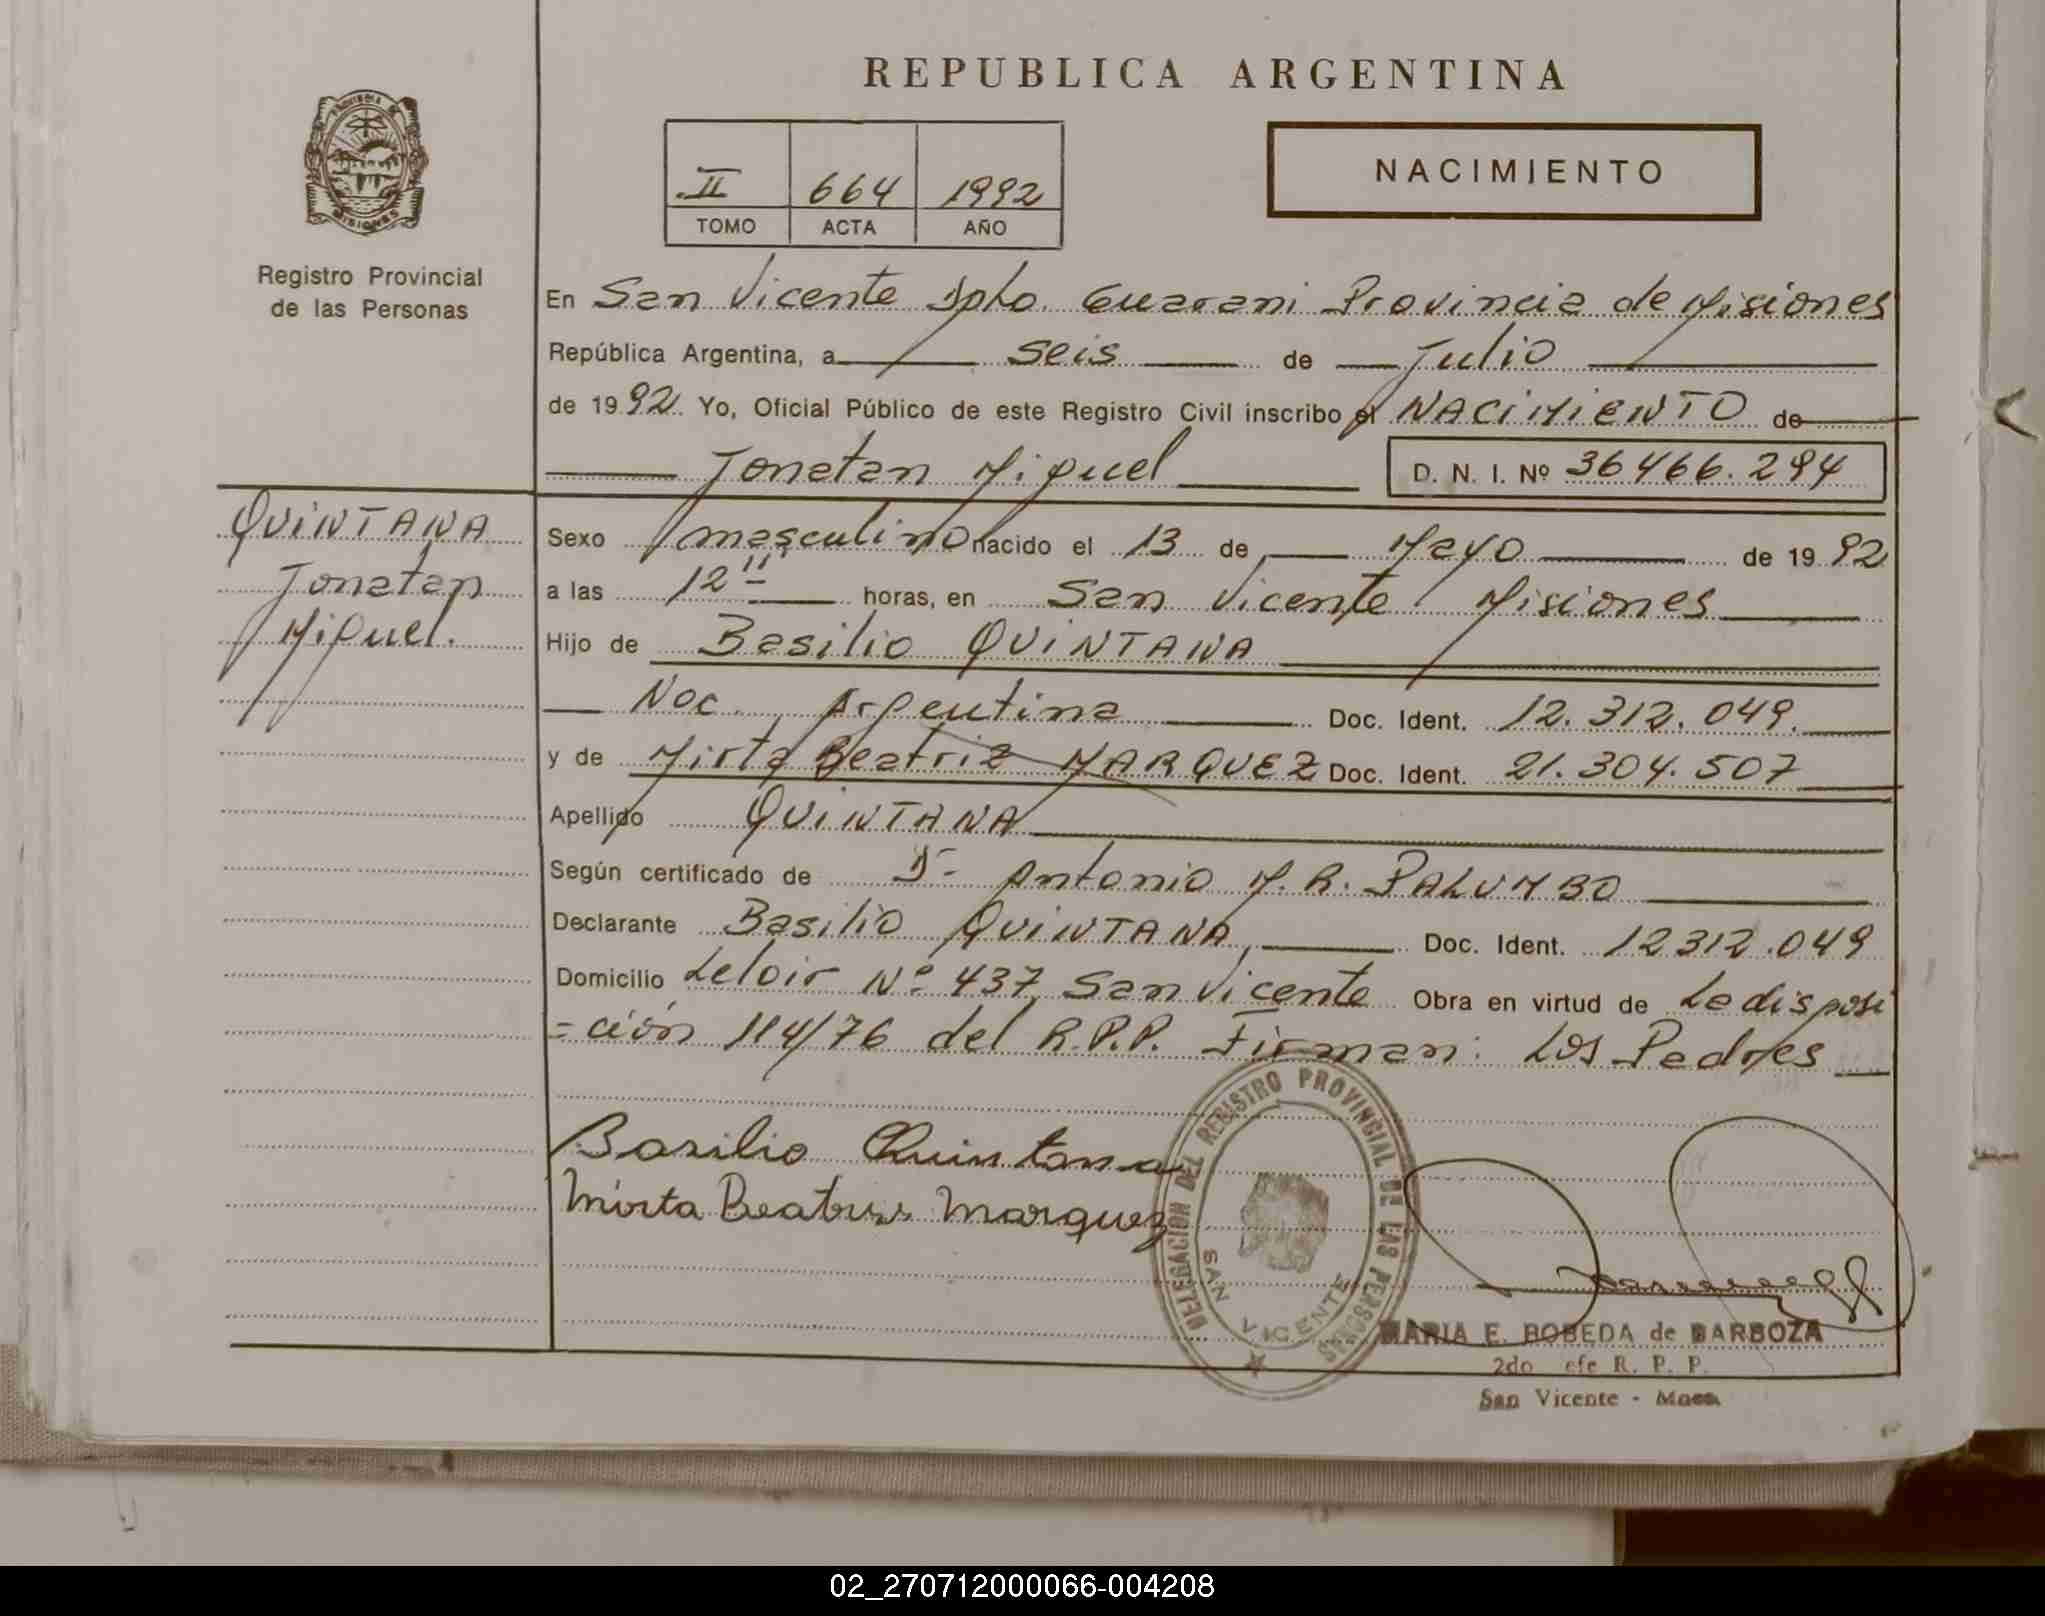 REPUBLICA ARGENTINA
PROVINCIA DE
MISIONES
Registro Provincial
de las Personas
II 664 1992
TOMO ACTA AÑO
NACIMIENTO
En San Vicente Dpto. Guarani Provincia de Misiones
República Argentina, a seis de Julio
de 1992. Yo, Oficial Público de este Registro Civil inscribo el NACIMIENTO de
Jonatan Miguel D. N. I. Nº 36466.294
QUINTANA
Jonatan
Miguel.
Sexo masculino nacido el 13 de Mayo de 1992
a las 12 horas, en San Vicente Misiones
Hijo de Basilio QUINTANA
Nac. Argentina Doc. Ident. 12.312.049.
y de Mirta Beatriz MARQUEZ Doc. Ident. 21.304.507
Apellido QUINTANA
Según certificado de Dr Antonio M. R. PALUMBO
Declarante Basilio QUINTANA, Doc. Ident. 12312.049
Domicilio Leloir Nº 437, San Vicente Obra en virtud de La disposi
=ción 114/76 del R.P.P. Firman: Los Padres
Basilio Quintana
Mirta Beatris Marquez
DELEGACION DEL REGISTRO PROVINCIAL DE LAS PERSONAS
SAN VICENTE
MARIA E. BOBEDA de BARBOZA
2do efe R. P. P.
San Vicente - Mnes.
02_270712000066-004208